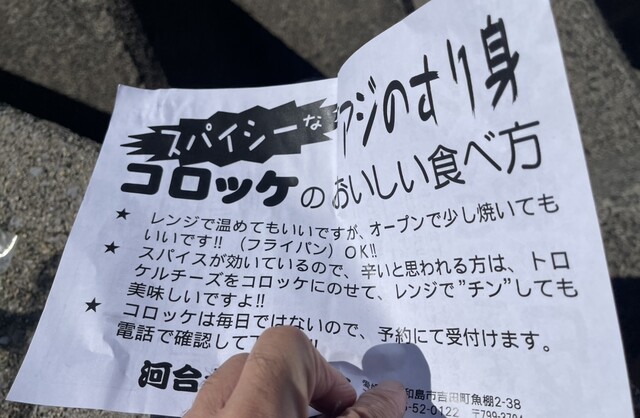 スパイシーな アジのすり身
コロッケのおいしい食べ方
★ レンジで温めてもいいですが、オーブンで少し焼いても
いいです!! (フライパン) OK!!
★ スパイスが効いているので、辛いと思われる方は、トロ
ケルチーズをコロッケにのせて、レンジで"チン"しても
美味しいですよ!!
★ コロッケは毎日ではないので、予約にて受付けます。
電話で確認して
河合
和島市吉田町魚棚2-38
-52-0122 〒799-3704